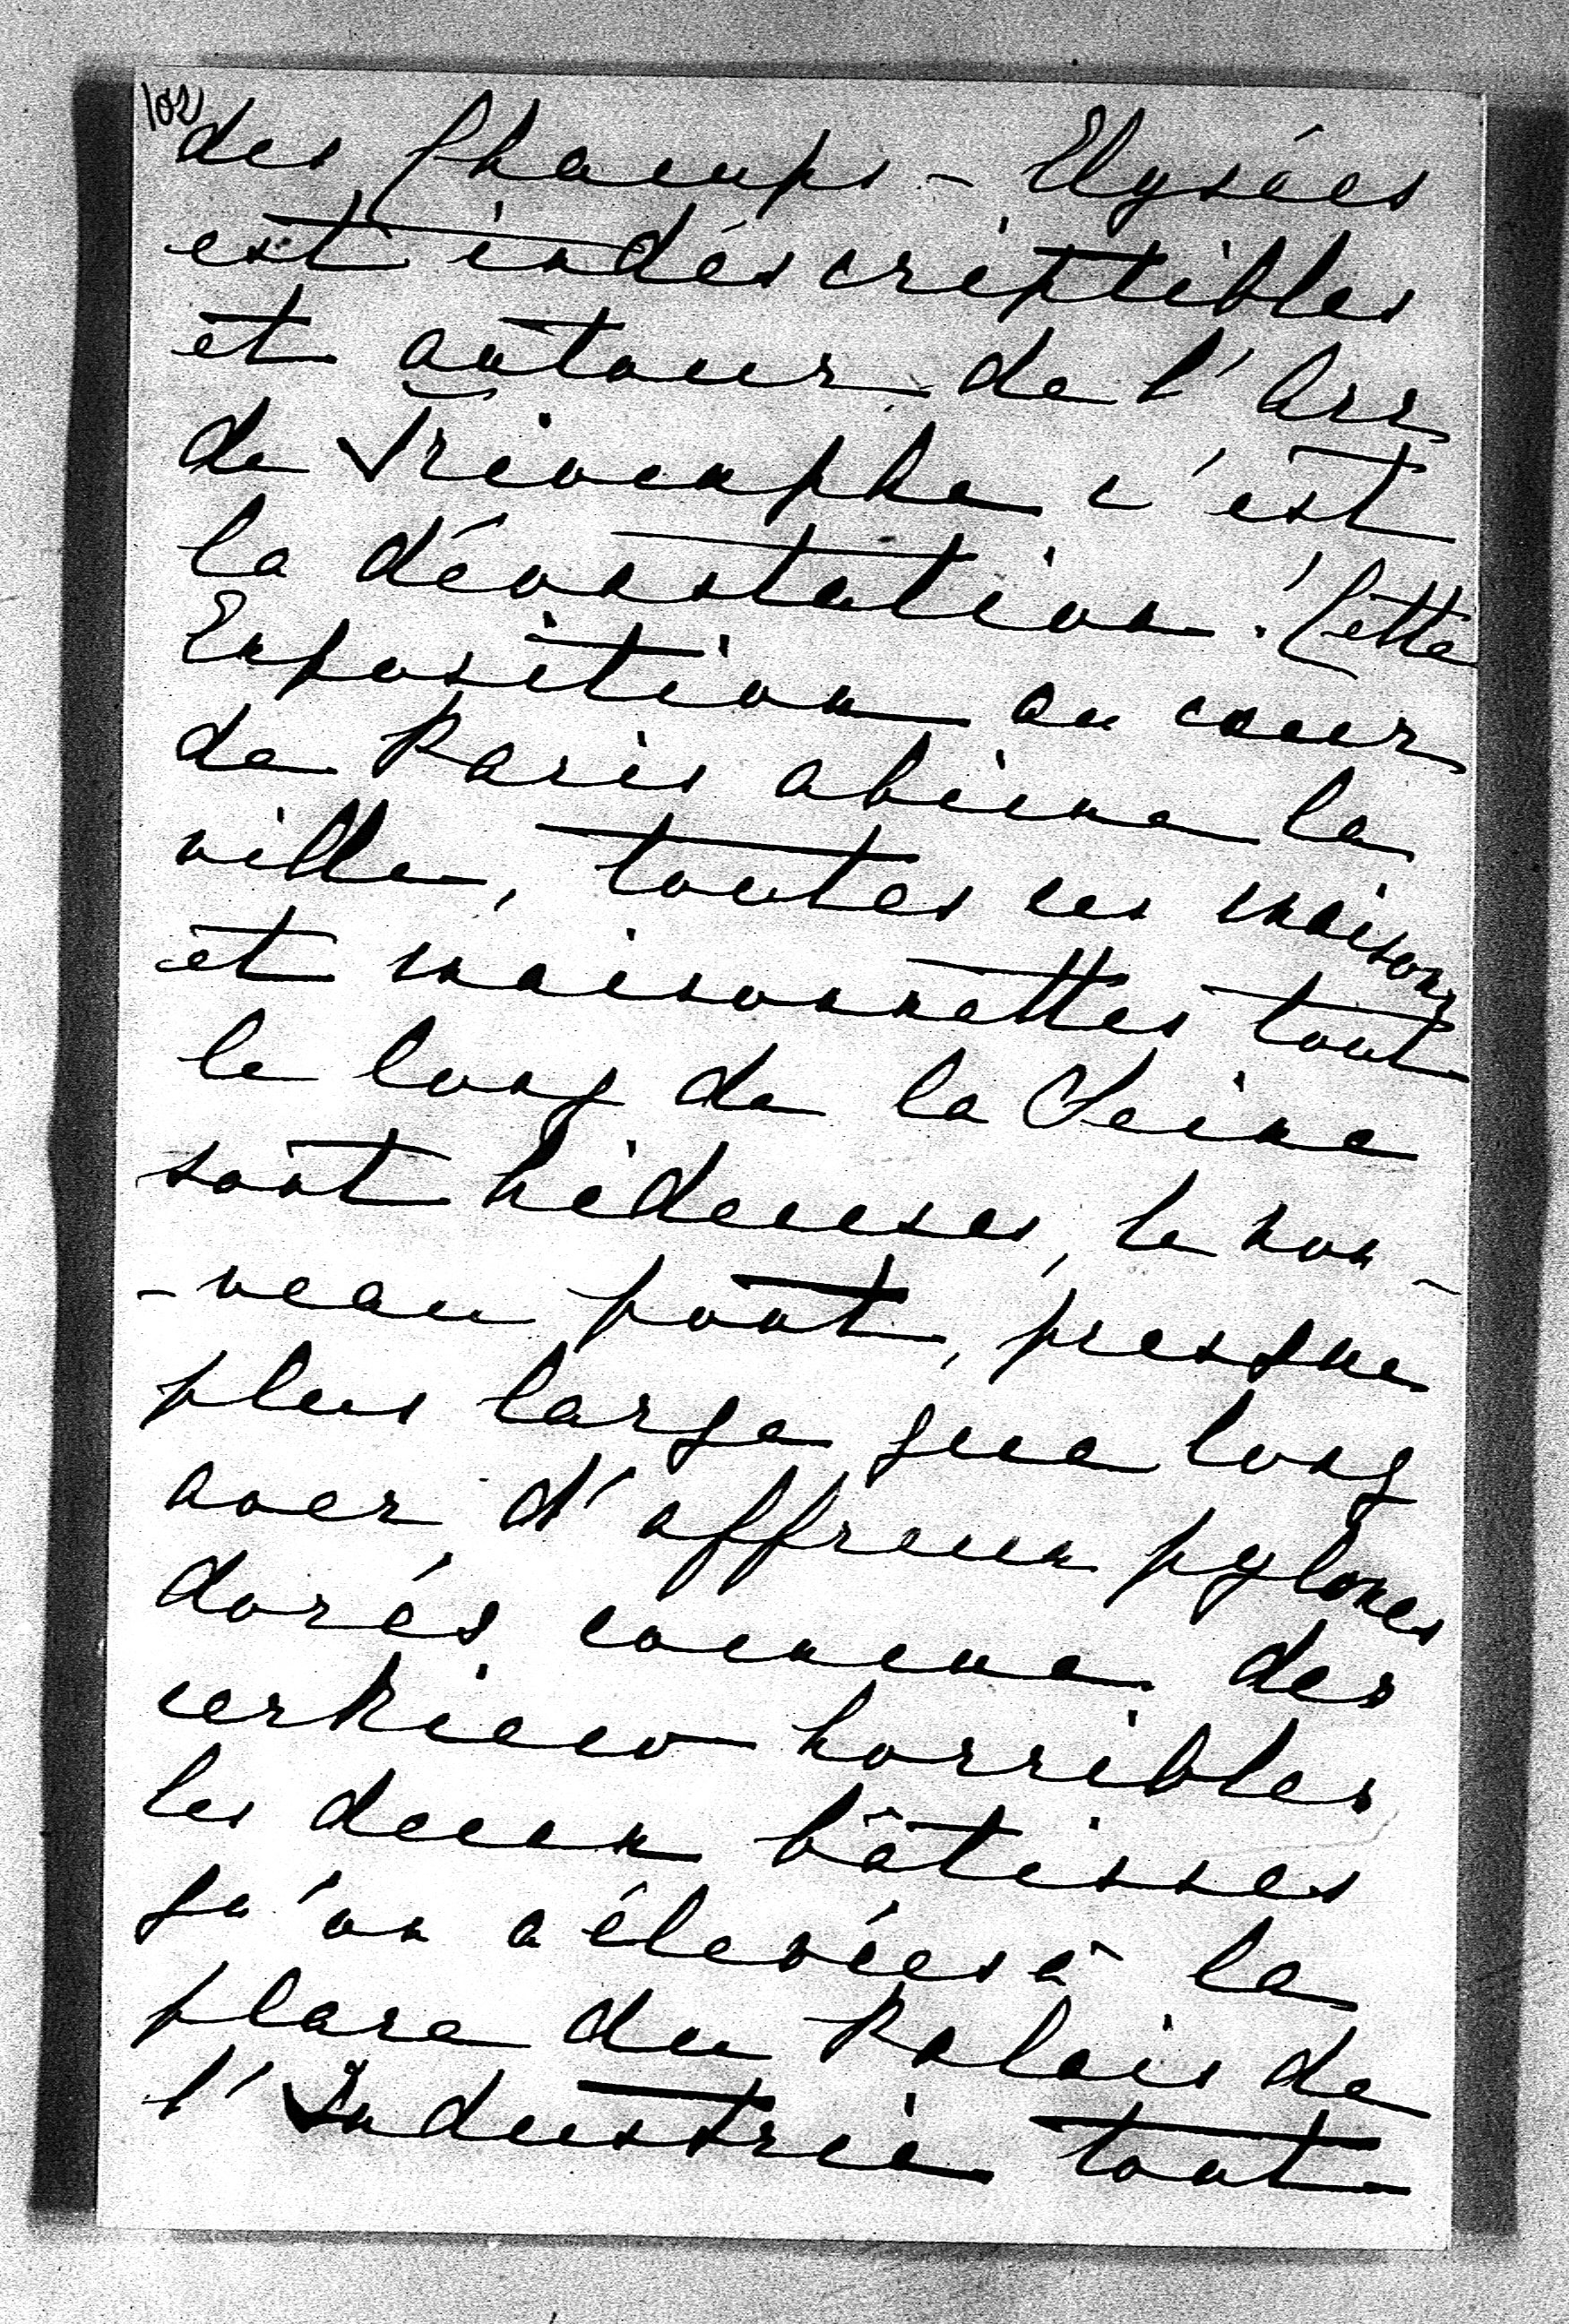 102
des Champs-Elysées
est indéscriptibles
et autour de l'Arc
de Triomphe c'est
la dévastation. Cette
Exposition au cœur
de Paris abime la
ville, toutes ces maisons
et maisonnettes tout
le long de la Seine
sont hideuses, le nou-
-veau pont, presque
plus large que long
avec d'affreux pylones
dorés comme des
horribles
les deux bâtisses
qu'on a élevées à la
place du Palais de
l'Industrie tout